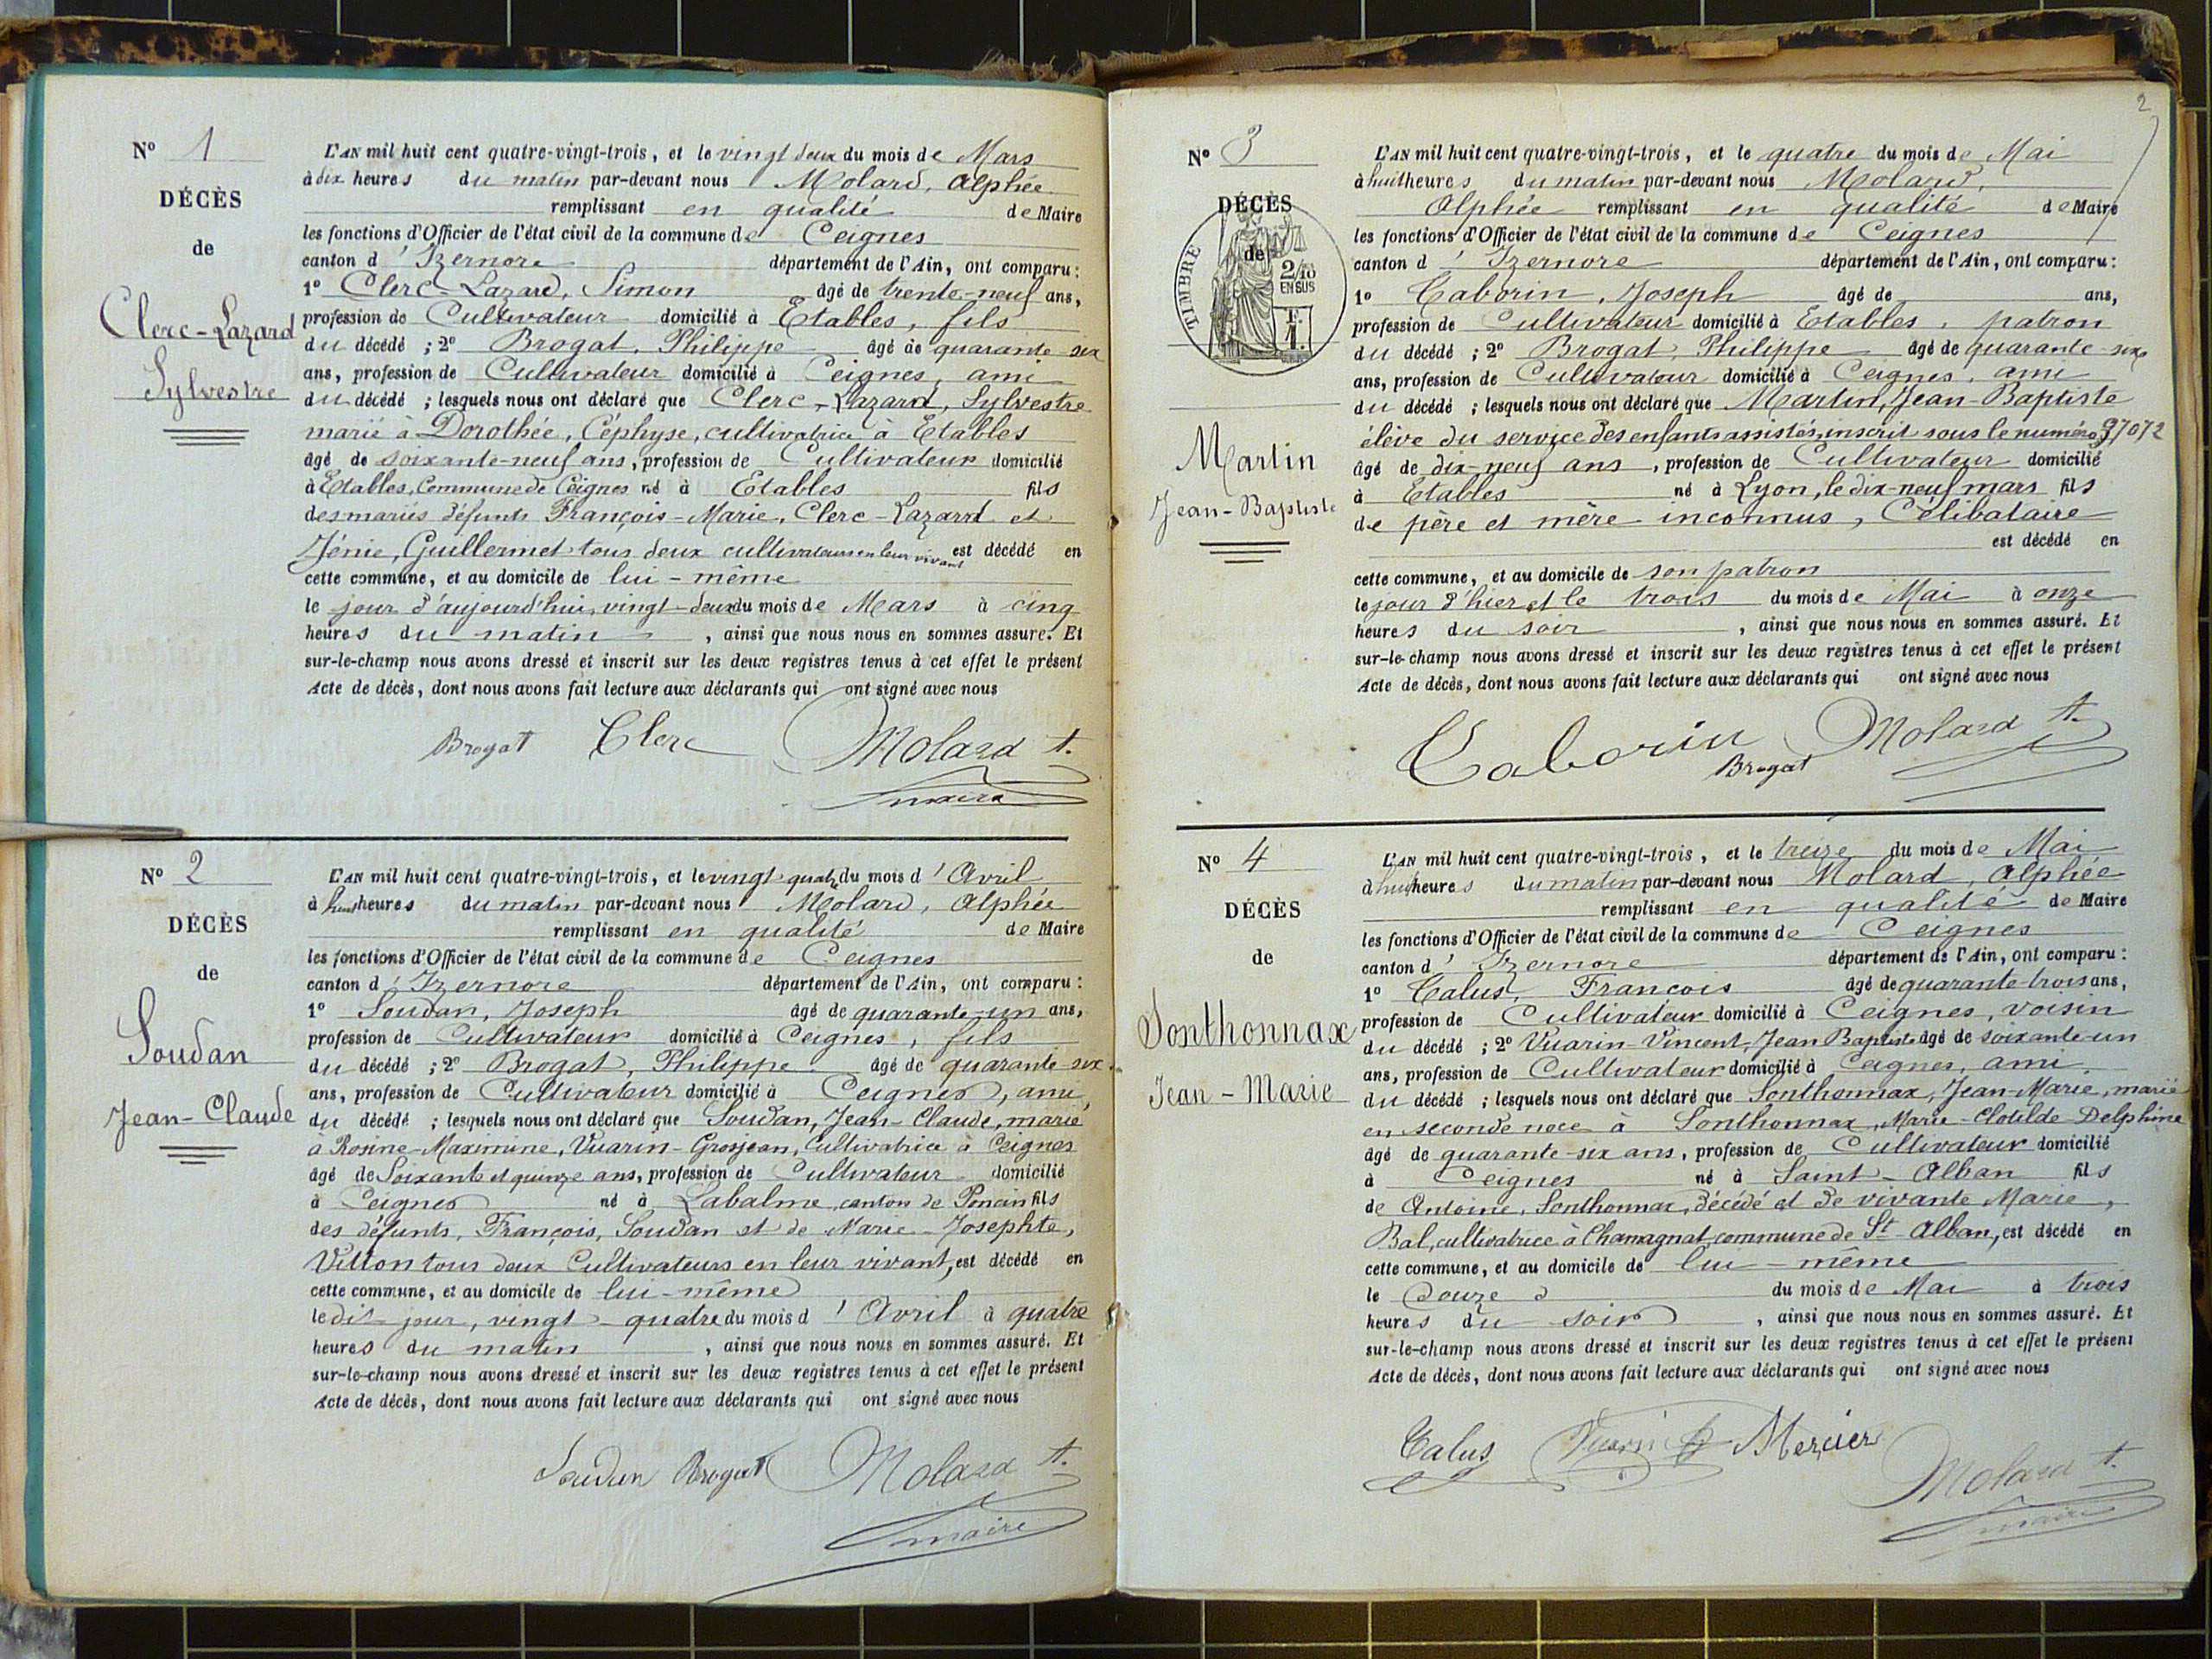 N° 1
DÉCÈS
de
Clerc-Lazard
Sylvestre
L'AN mil huit cent quatre-vingt-trois, et le vingt deux du mois de Mars
à dix heures du matin par-devant nous Molard, Alphée
remplissant en qualité de Maire
les fonctions d'Officier de l'état civil de la commune de Ceignes
canton d'Izernore département de l'Ain, ont comparu :
1° Clerc-Lazard, Simon âgé de trente-neuf ans,
profession de Cultivateur domicilié à Etables, fils
du décédé ; 2° Brogat, Philippe âgé de quarante-six
ans, profession de Cultivateur domicilié à Ceignes, ami
du décédé ; lesquels nous ont déclaré que Clerc-Lazard, Sylvestre
marié à Dorothée, Céphyse, cultivatrice à Etables
âgé de soixante-neuf ans, profession de Cultivateur domicilié
à Etables, Commune de Ceignes né à Etables fils
des mariés défunts François-Marie, Clerc-Lazard et
Jénie, Guillermet tous deux cultivateurs en leur vivant est décédé en
cette commune, et au domicile de lui-même
le jour d'aujourd'hui, vingt-deux du mois de Mars à cinq
heures du matin, ainsi que nous nous en sommes assuré. Et
sur-le-champ nous avons dressé et inscrit sur les deux registres tenus à cet effet le présent
Acte de décès, dont nous avons fait lecture aux déclarants qui ont signé avec nous
Brogat Clerc Molard A.
maire
N° 2
DÉCÈS
de
Soudan
Jean-Claude
L'AN mil huit cent quatre-vingt-trois, et le vingt quatre du mois d'Avril
à huit heures du matin par-devant nous Molard, Alphée
remplissant en qualité de Maire
les fonctions d'Officier de l'état civil de la commune de Ceignes
canton d'Izernore département de l'Ain, ont comparu :
1° Soudan, Joseph âgé de quarante-un ans,
profession de Cultivateur domicilié à Ceignes, fils
du décédé ; 2° Brogat, Philippe âgé de quarante-six
ans, profession de Cultivateur domicilié à Ceignes, ami
du décédé ; lesquels nous ont déclaré que Soudan, Jean-Claude, marié
à Rosine-Maximine, Vuarin-Grosjean, Cultivatrice à Ceignes
âgé de Soixante et quinze ans, profession de Cultivateur domicilié
à Ceignes né à Labalme, canton de Poncin fils
des défunts, François, Soudan et de Marie-Josephte,
Vitton tous deux Cultivateurs en leur vivant, est décédé en
cette commune, et au domicile de lui-même
le dit jour, vingt-quatre du mois d'Avril à quatre
heures du matin, ainsi que nous nous en sommes assuré. Et
sur-le-champ nous avons dressé et inscrit sur les deux registres tenus à cet effet le présent
Acte de décès, dont nous avons fait lecture aux déclarants qui ont signé avec nous
Soudan Brogat Molard A.
maire
2
N° 3
DÉCÈS
de
TIMBRE
2/10
EN SUS
1 F.
Martin
Jean-Baptiste
L'AN mil huit cent quatre-vingt-trois, et le quatre du mois de Mai
à huit heures du matin par-devant nous Molard,
Alphée remplissant en qualité de Maire
les fonctions d'Officier de l'état civil de la commune de Ceignes
canton d'Izernore département de l'Ain, ont comparu :
1° Caborin, Joseph âgé de ans,
profession de Cultivateur domicilié à Etables, patron
du décédé ; 2° Brogat, Philippe âgé de quarante-six
ans, profession de Cultivateur domicilié à Ceignes, ami
du décédé ; lesquels nous ont déclaré que Martin, Jean-Baptiste
élève du service des enfants assistés, inscrit sous le numéro 37072
âgé de dix-neuf ans, profession de Cultivateur domicilié
à Etables né à Lyon, le dix-neuf mars fils
de père et mère inconnus, Célibataire
est décédé en
cette commune, et au domicile de son patron
le jour d'hier et le trois du mois de Mai à onze
heures du soir, ainsi que nous nous en sommes assuré. Et
sur-le-champ nous avons dressé et inscrit sur les deux registres tenus à cet effet le présent
Acte de décès, dont nous avons fait lecture aux déclarants qui ont signé avec nous
Caborin Brogat Molard A.
N° 4
DÉCÈS
de
Sonthonnax
Jean-Marie
L'AN mil huit cent quatre-vingt-trois, et le treize du mois de Mai
à huit heures du matin par-devant nous Molard, Alphée
remplissant en qualité de Maire
les fonctions d'Officier de l'état civil de la commune de Ceignes
canton d'Izernore département de l'Ain, ont comparu :
1° Calus, Francois âgé de quarante-trois ans,
profession de Cultivateur domicilié à Ceignes, voisin
du décédé ; 2° Vuarin-Vincent, Jean Baptiste âgé de soixante-un
ans, profession de Cultivateur domicilié à Ceignes, ami
du décédé ; lesquels nous ont déclaré que Sonthonnax, Jean-Marie, marié
en seconde noce à Sonthonnax, Marie-Clotilde Delphine
âgé de quarante-six ans, profession de Cultivateur domicilié
à Ceignes né à Saint-Alban fils
de Antoine, Sonthonnax, décédé et de vivante Marie,
Bal, cultivatrice à Chamagnat, commune de St-Alban, est décédé en
cette commune, et au domicile de lui-même
le douze du mois de Mai à trois
heures du soir, ainsi que nous nous en sommes assuré. Et
sur-le-champ nous avons dressé et inscrit sur les deux registres tenus à cet effet le présent
Acte de décès, dont nous avons fait lecture aux déclarants qui ont signé avec nous
Calus Mercier Molard A.
maire